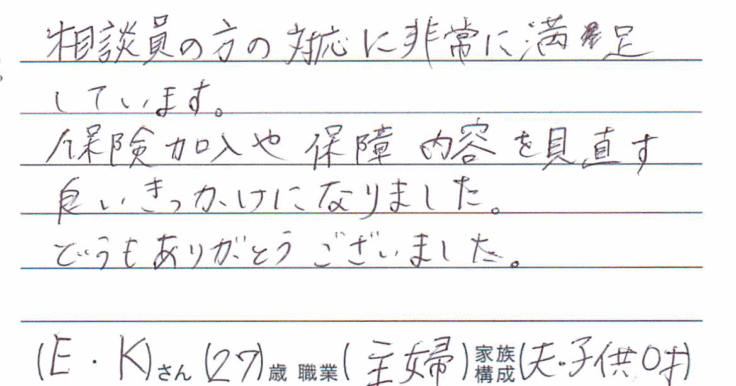 相談員の方の対応に非常に満足
しています。
保険加入や保障内容を見直す
良いきっかけになりました。
どうもありがとうございました。
(E・K)さん(27)歳 職業(主婦)家族構成(夫・子供0才)